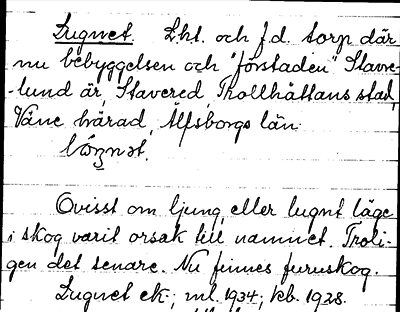 Lugnet. Lht. och f.d. torp där
nu bebyggelsen och "förstaden" Stave-
-lund är, Stavered, Trollhättans stad,
Väne härad, Älfsborgs län.
Ovisst om ljung eller lugnt läge
i skog varit orsak till namnet. Troli-
gen det senare. Nu finnes furuskog.
Lugnet ek.; ml. 1934; kb. 1928.